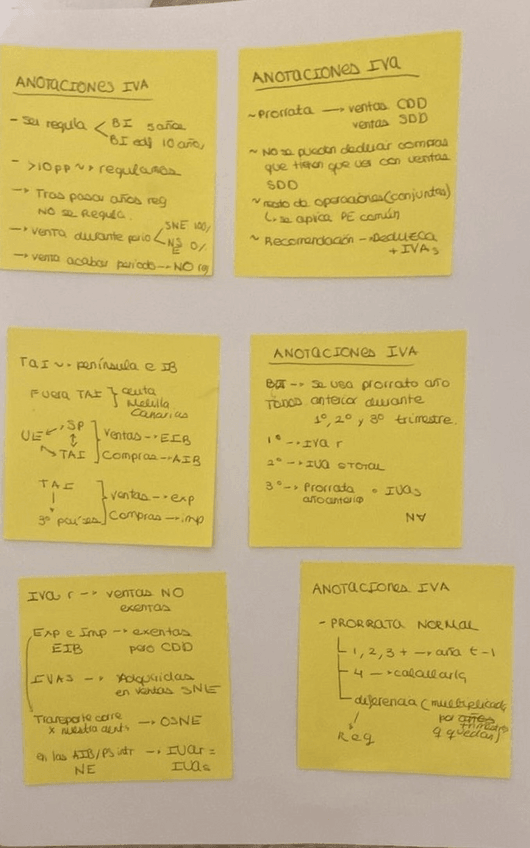 ANOTACIONES IVA
- Se regula < BI 5 años
BI edf 10 años
- >10 pp ~> regulamos
-> Tras pasar años reg
NO se regula.
-> venta durante perio < SNE 100%
NS E 0%
-> venta acabar periodo -> NO reg
ANOTACIONES IVA
~ Prorrata -> ventas CDD
ventas SDD
~ NO se pueden deducir compras
que tienen que ver con ventas
SDD
~ resto de operaciones (conjuntas)
↳ se aplica PE común
~ Recomendación -> Deduzca
+ IVA s
TAI ~ península e IB
FUERA TAI } Ceuta
Melilla
Canarias
UE SP
TAI
ventas -> EIB
Compras -> AIB
TAI
3º países
ventas -> exp
Compras -> imp
ANOTACIONES IVA
-> Se usa prorrata año
anterior durante
1º, 2º y 3º trimestre.
1º -> IVA r
2º -> IVA s TOTAL
3º -> Prorrata
año anterior · IVAs
IVA r -> ventas NO
exentas
Exp e Imp -> exentas
EIB pero CDD
IVAS -> Adquiridas
en ventas SNE
Transporte corre
x nuestra -> OSNE
en las AIB/PS -> IVAr =
NE IVAs
ANOTACIONES IVA
- PRORRATA NORMAL
1, 2, 3 t -> año t-1
4 -> calcularla
diferencia (multiplicada
por años
q quedas)
Reg